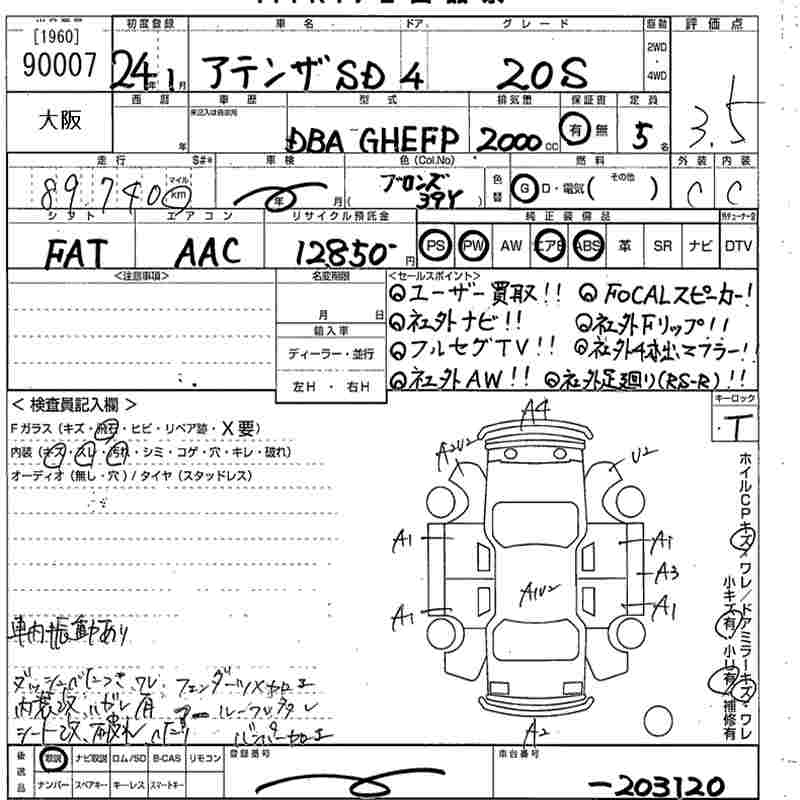 [1960]
90007
初度登録 車名 ドア グレード 駆動 評価点
24年 1月 アテンザSD 4 20S 2WD・4WD 3.5
西暦 車歴 型式 排気量 保証書 定員
大阪 年 DBA GHEFP 2000cc 有 無 5名
走行 S#* 車検 色(Col.No) 色替 燃料 外装 内装
89,740 マイル km 年 月 ( ブロンズ 39Y ) G・D・電気( その他 ) C C
シフト エアコン リサイクル預託金 純正装備品
FAT AAC 12850-円 PS PW AW エアB ABS 革 SR ナビ DTV
<注意事項> 名変期限 <セールスポイント>
月 日
輸入車
ディーラー・並行
左H ・ 右H
ユーザー買取!! FOCALスピーカー!
社外ナビ!! 社外Fリップ!!
フルセグTV!! 社外4本出マフラー!!
社外AW!! 社外足廻り(RS-R)!!
キーロック
T
< 検査員記入欄 >
Fガラス (キズ・飛石・ヒビ・リペア跡・X要)
内装 (キズ・スレ・汚れ・シミ・コゲ・穴・キレ・破れ)
オーディオ (無し・穴) / タイヤ (スタッドレス)
A4
A2U2
U2
A1
A1
A3
A1U2
A1
A1
A2
ホイルCPキズ・ワレ/ドアミラーキズ・ワレ
小キズ有・小U有・補修有
車内振動あり
フェンダーツメカロエ
バンパーカロエ
後送品 取説 ナビ取説 ロム/SD B-CAS リモコン
ナンバー スペアキー キーレス スマートキー
登録番号 車台番号
-203120